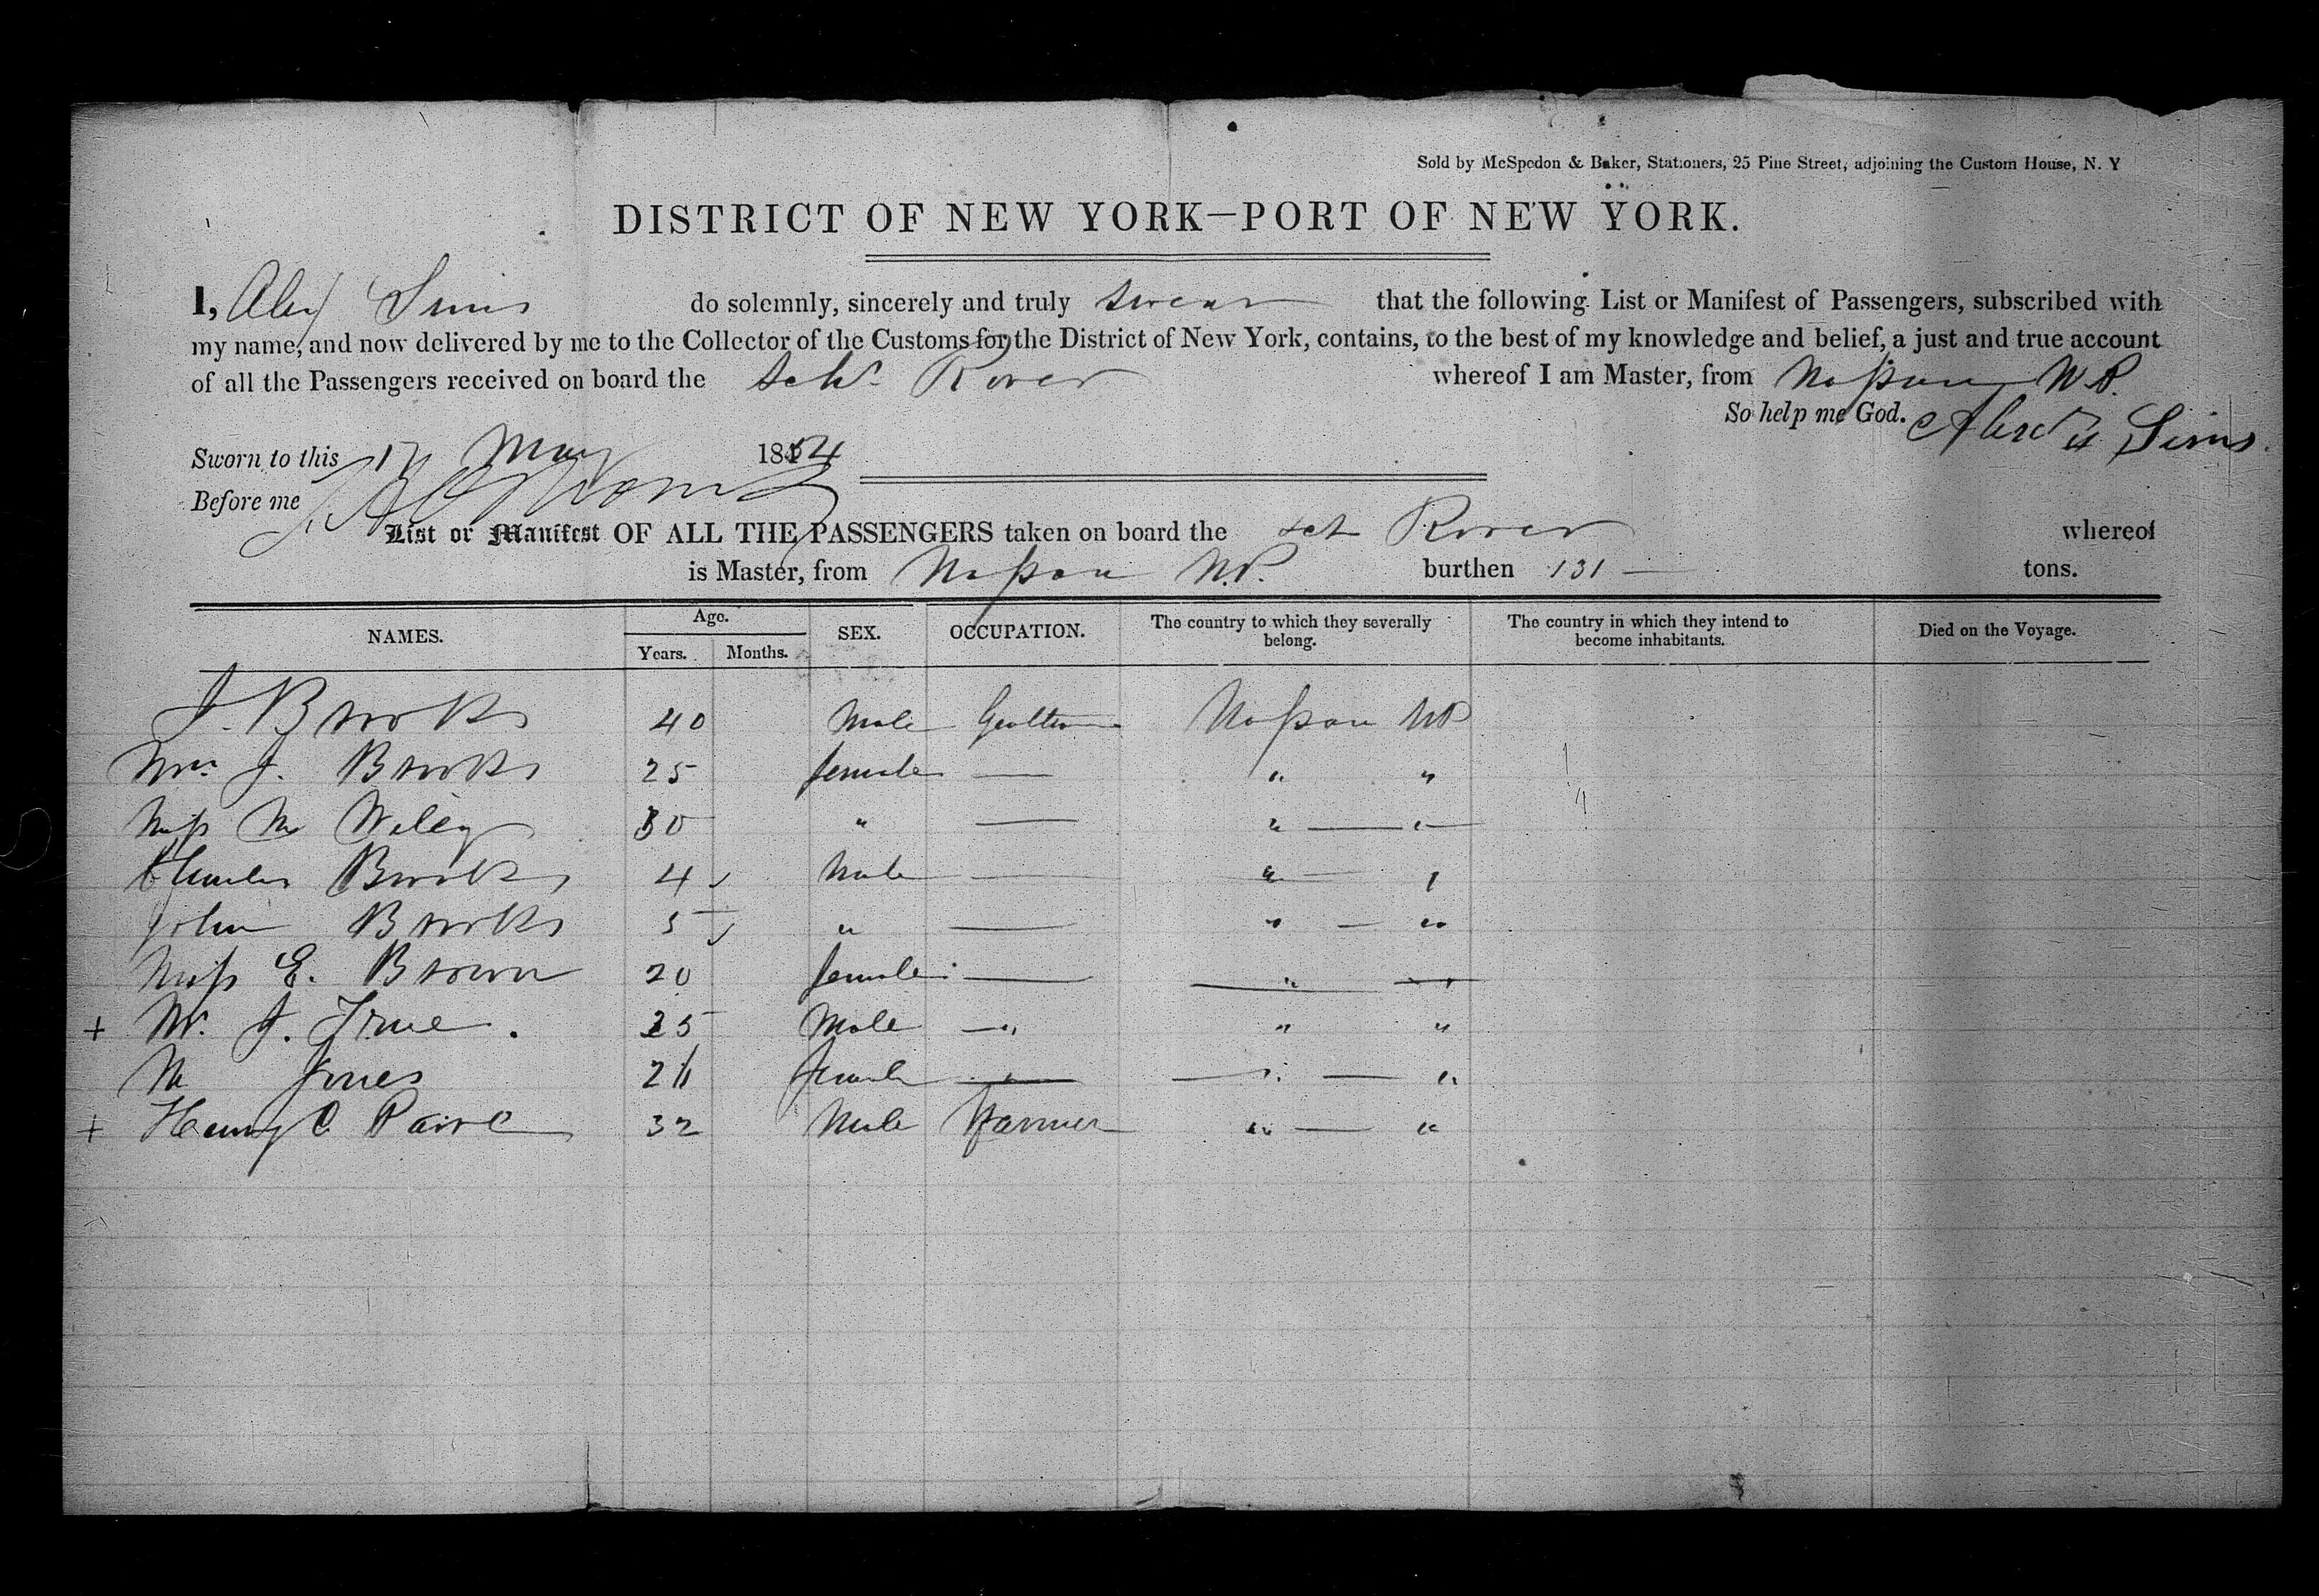 Sold by McSpedon & Baker, Stationers, 25 Pine Street, adjoining the Custom House, N. Y
DISTRICT OF NEW YORK—PORT OF NEW YORK.
I, Alex Sims do solemnly, sincerely and truly swear that the following List or Manifest of Passengers, subscribed with
my name, and now delivered by me to the Collector of the Customs for the District of New York, contains, to the best of my knowledge and belief, a just and true account
of all the Passengers received on board the Schr Rover whereof I am Master, from Nassau N.P.
So help me God. Alexr Sims.
Sworn to this 17 May 1854
Before me
List or Manifest OF ALL THE PASSENGERS taken on board the sch Rover whereof
is Master, from Nassau N.P. burthen 131 — tons.
NAMES. Age. Years. Months. SEX. OCCUPATION. The country to which they severally belong. The country in which they intend to become inhabitants. Died on the Voyage.
J. Brooks 40 Male Nassau NP
Mrs. J. Brooks 25 female — " "
Miss M Wiley 30 " — " — "
Charles Brooks 4 Male — " — "
John Brooks 5 " — " — "
Miss E. Brown 20 female — " "
+ Mr. J. True. 25 Male — " " "
M Jones female — " — "
+ Henry C Paine 32 Male Farmer " — "